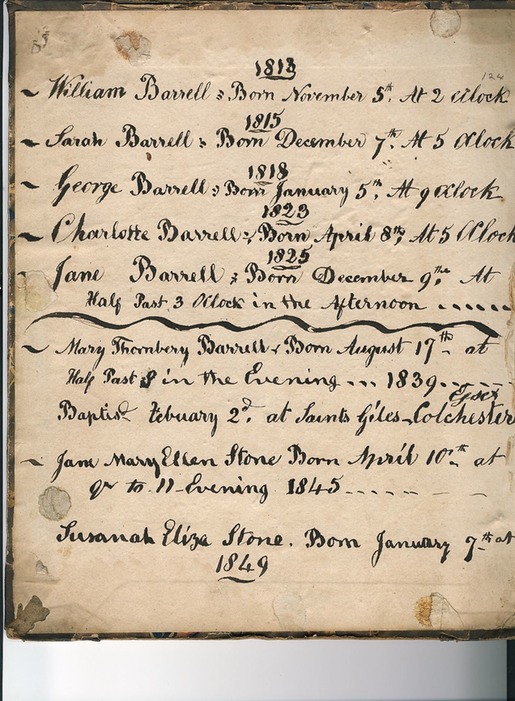 124
1813
~ William Barrell : Born November 5th. At 2 oClock
1815
~ Sarah Barrell : Born December 7th. At 5 OClock
1818
~ George Barrell : Born January 5th. At 9 oClock
1823
~ Charlotte Barrell : Born April 8th. At 5 OClock
1825
~ Jane Barrell : Born December 9the. At
Half Past 3 OClock in the Afternoon ......
~ Mary Thornbery Barrell Born August 17th at
Half Past 8 in the Evening ... 1839 ....
Essex
Baptisd Febuary 2d. at Saints Giles Colchester
~ Jane Mary Ellen Stone Born April 10th at
qr to 11 Evening 1845 .....
Susanah Eliza Stone. Born January 7th at
1849